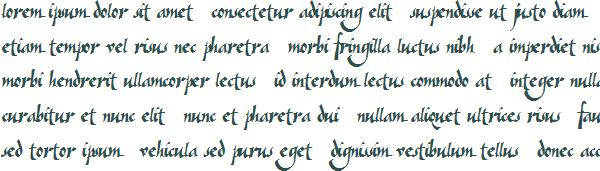 lorem ipsum dolor sit amet consectetur adipiscing elit suspendisse ut justo diam
etiam tempor vel risus nec pharetra morbi fringilla luctus nibh a imperdiet nis
morbi hendrerit ullamcorper lectus id interdum lectus commodo at integer nulla
curabitur et nunc elit nunc et pharetra dui nullam aliquet ultrices risus fau
sed tortor ipsum vehicula sed purus eget dignissim vestibulum tellus donec acc